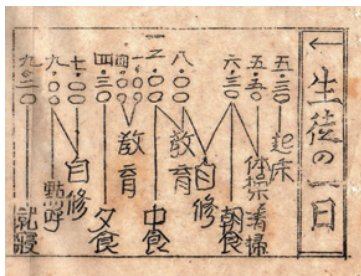 ←生徒の一日
五・三〇 起床
五・五〇 体操 清掃
六・三〇 朝食
自修
八・〇〇
教育
一二・〇〇 中食
一・〇〇
教育
四・〇〇
四・三〇 夕食
七・〇〇
自修
九・〇〇 點呼
就寢